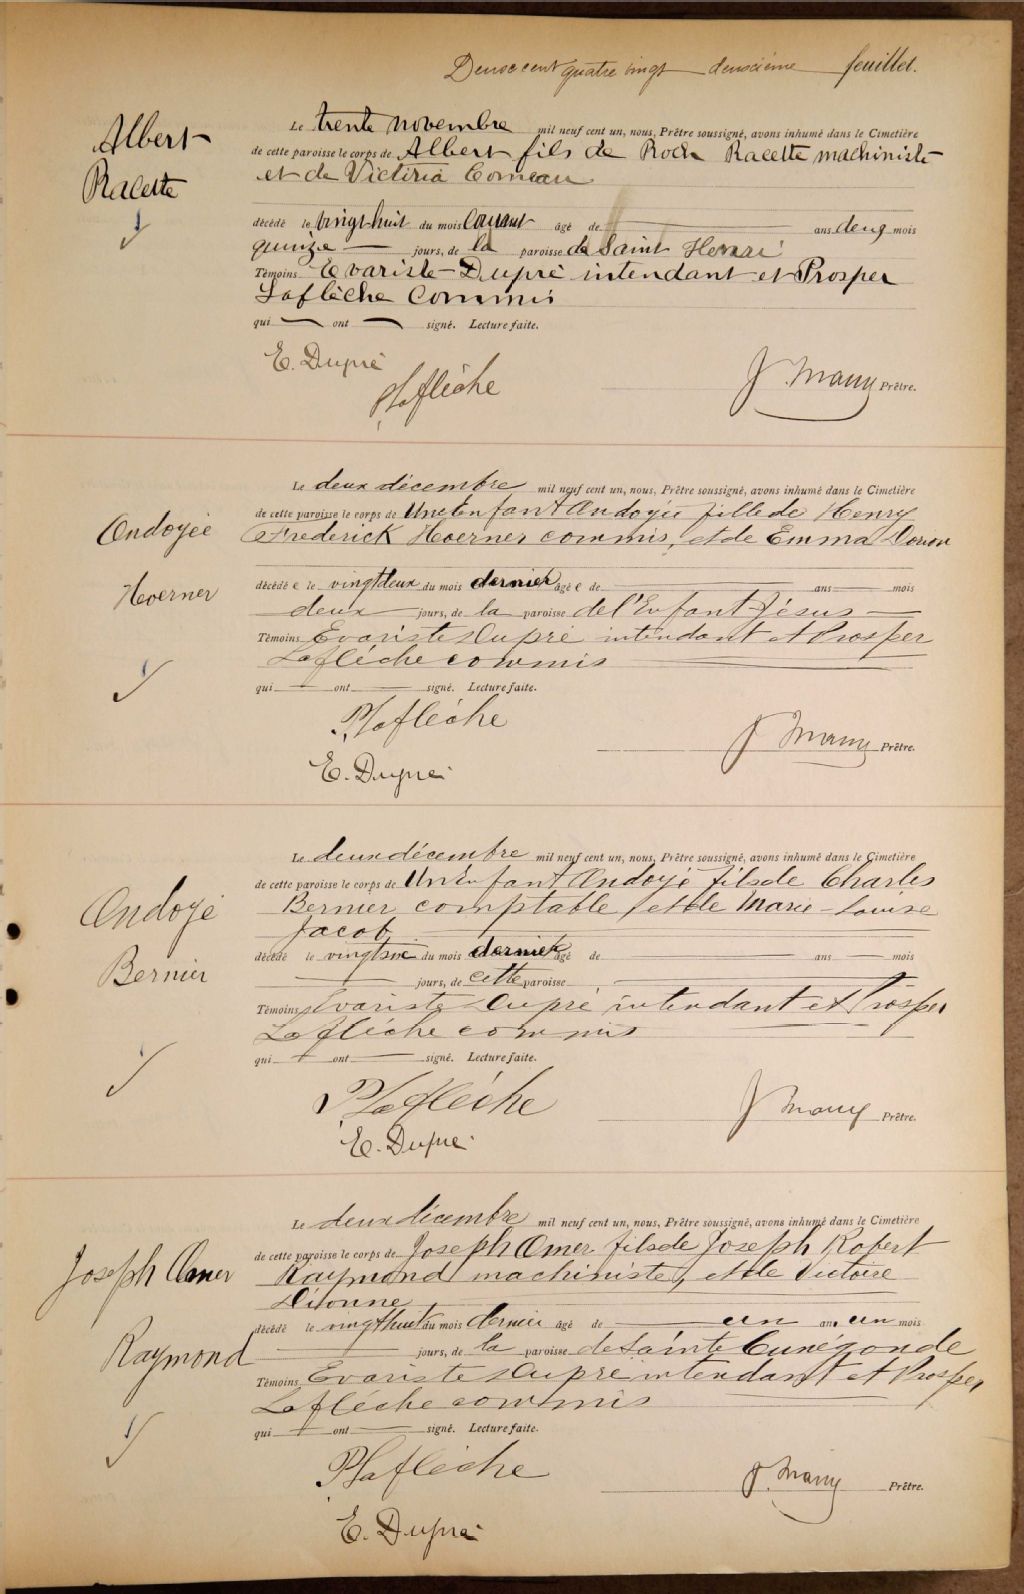 Deux cent quatre vingt deuxième feuillet.
Albert
Racette
Le trente novembre mil neuf cent un, nous, Prêtre soussigné, avons inhumé dans le Cimetière
de cette paroisse le corps de Albert fils de Roch Racette machiniste
et de Victiria Comeau
décédé le vingt huit du mois courant âgé de ans deux mois
quinze jours, de la paroisse de Saint Henri
Témoins Evariste Dupré intendant et Prosper
Laflèche Commis
qui ont signé. Lecture faite.
E. Dupré
PLaflèche
J. Prêtre.
Ondoyée
Hoerner
Le deux décembre mil neuf cent un, nous, Prêtre soussigné, avons inhumé dans le Cimetière
de cette paroisse le corps de Un Enfant Ondoyée fille de Henry
Frederick Hoerner commis, et de Emma Dorion
décédée le vingt deux du mois dernier âgée de ans mois
deux jours, de la paroisse de l'Enfant-Jésus
Témoins Evariste Dupré intendant et Prosper
Laflèche commis
qui ont signé. Lecture faite.
PLaflèche
J. Prêtre.
E. Dupré
Ondoyé
Bernier
Le deux décembre mil neuf cent un, nous, Prêtre soussigné, avons inhumé dans le Cimetière
de cette paroisse le corps de Un Enfant Ondoyé fils de Charles
Bernier comptable, et de Marie-Louise
Jacob
décédé le vingt six du mois dernier âgé de ans mois
jours, de cette paroisse
Témoins Evariste Dupré intendant et Prosper
Laflèche commis
qui ont signé. Lecture faite.
PLaflèche
J. Prêtre.
E. Dupré
Joseph Omer
Raymond
Le deux décembre mil neuf cent un, nous, Prêtre soussigné, avons inhumé dans le Cimetière
de cette paroisse le corps de Joseph Omer fils de Joseph Robert
Raymond machiniste, et de Victoire
Dionne
décédé le vingt huit du mois dernier âgé de un an. un mois
jours, de la paroisse de Sainte Cunégonde
Témoins Evariste Dupré intendant et Prosper
Laflèche commis
qui ont signé. Lecture faite.
PLaflèche
J. Prêtre.
E. Dupré